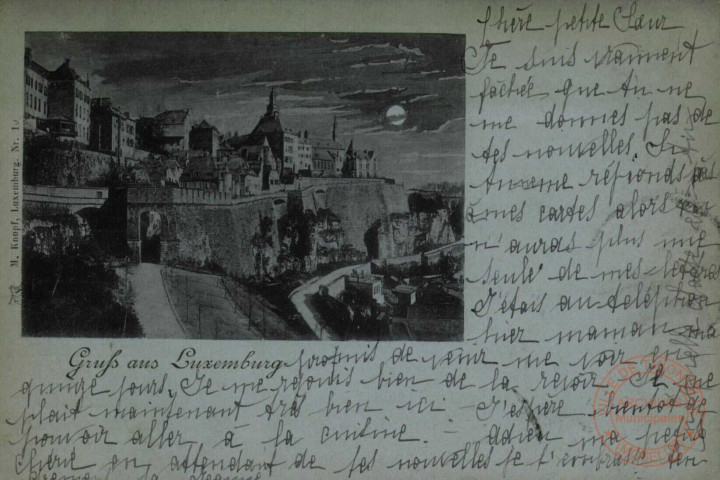 Chère petite Sœur
Je suis vraiment
fâchée que tu ne
me donnes pas de
tes nouvelles. Si
tu ne me réponds pas
à mes cartes alors tu
n'auras plus une
seule de mes lettres
J'étais au téléphon
hier maman m'a
promis de venir me voir en
quinze jours. Je me réjouis bien de la revoir. Je me
plait maintenant très bien ici. J'espère bientôt de
pouvoir aller à la cuisine. Adieu ma petite
chérie en attendant de tes nouvelles je t'embrasse ten
Gruß aus Luxemburg
M. Knopf, Luxemburg. Nr. 10